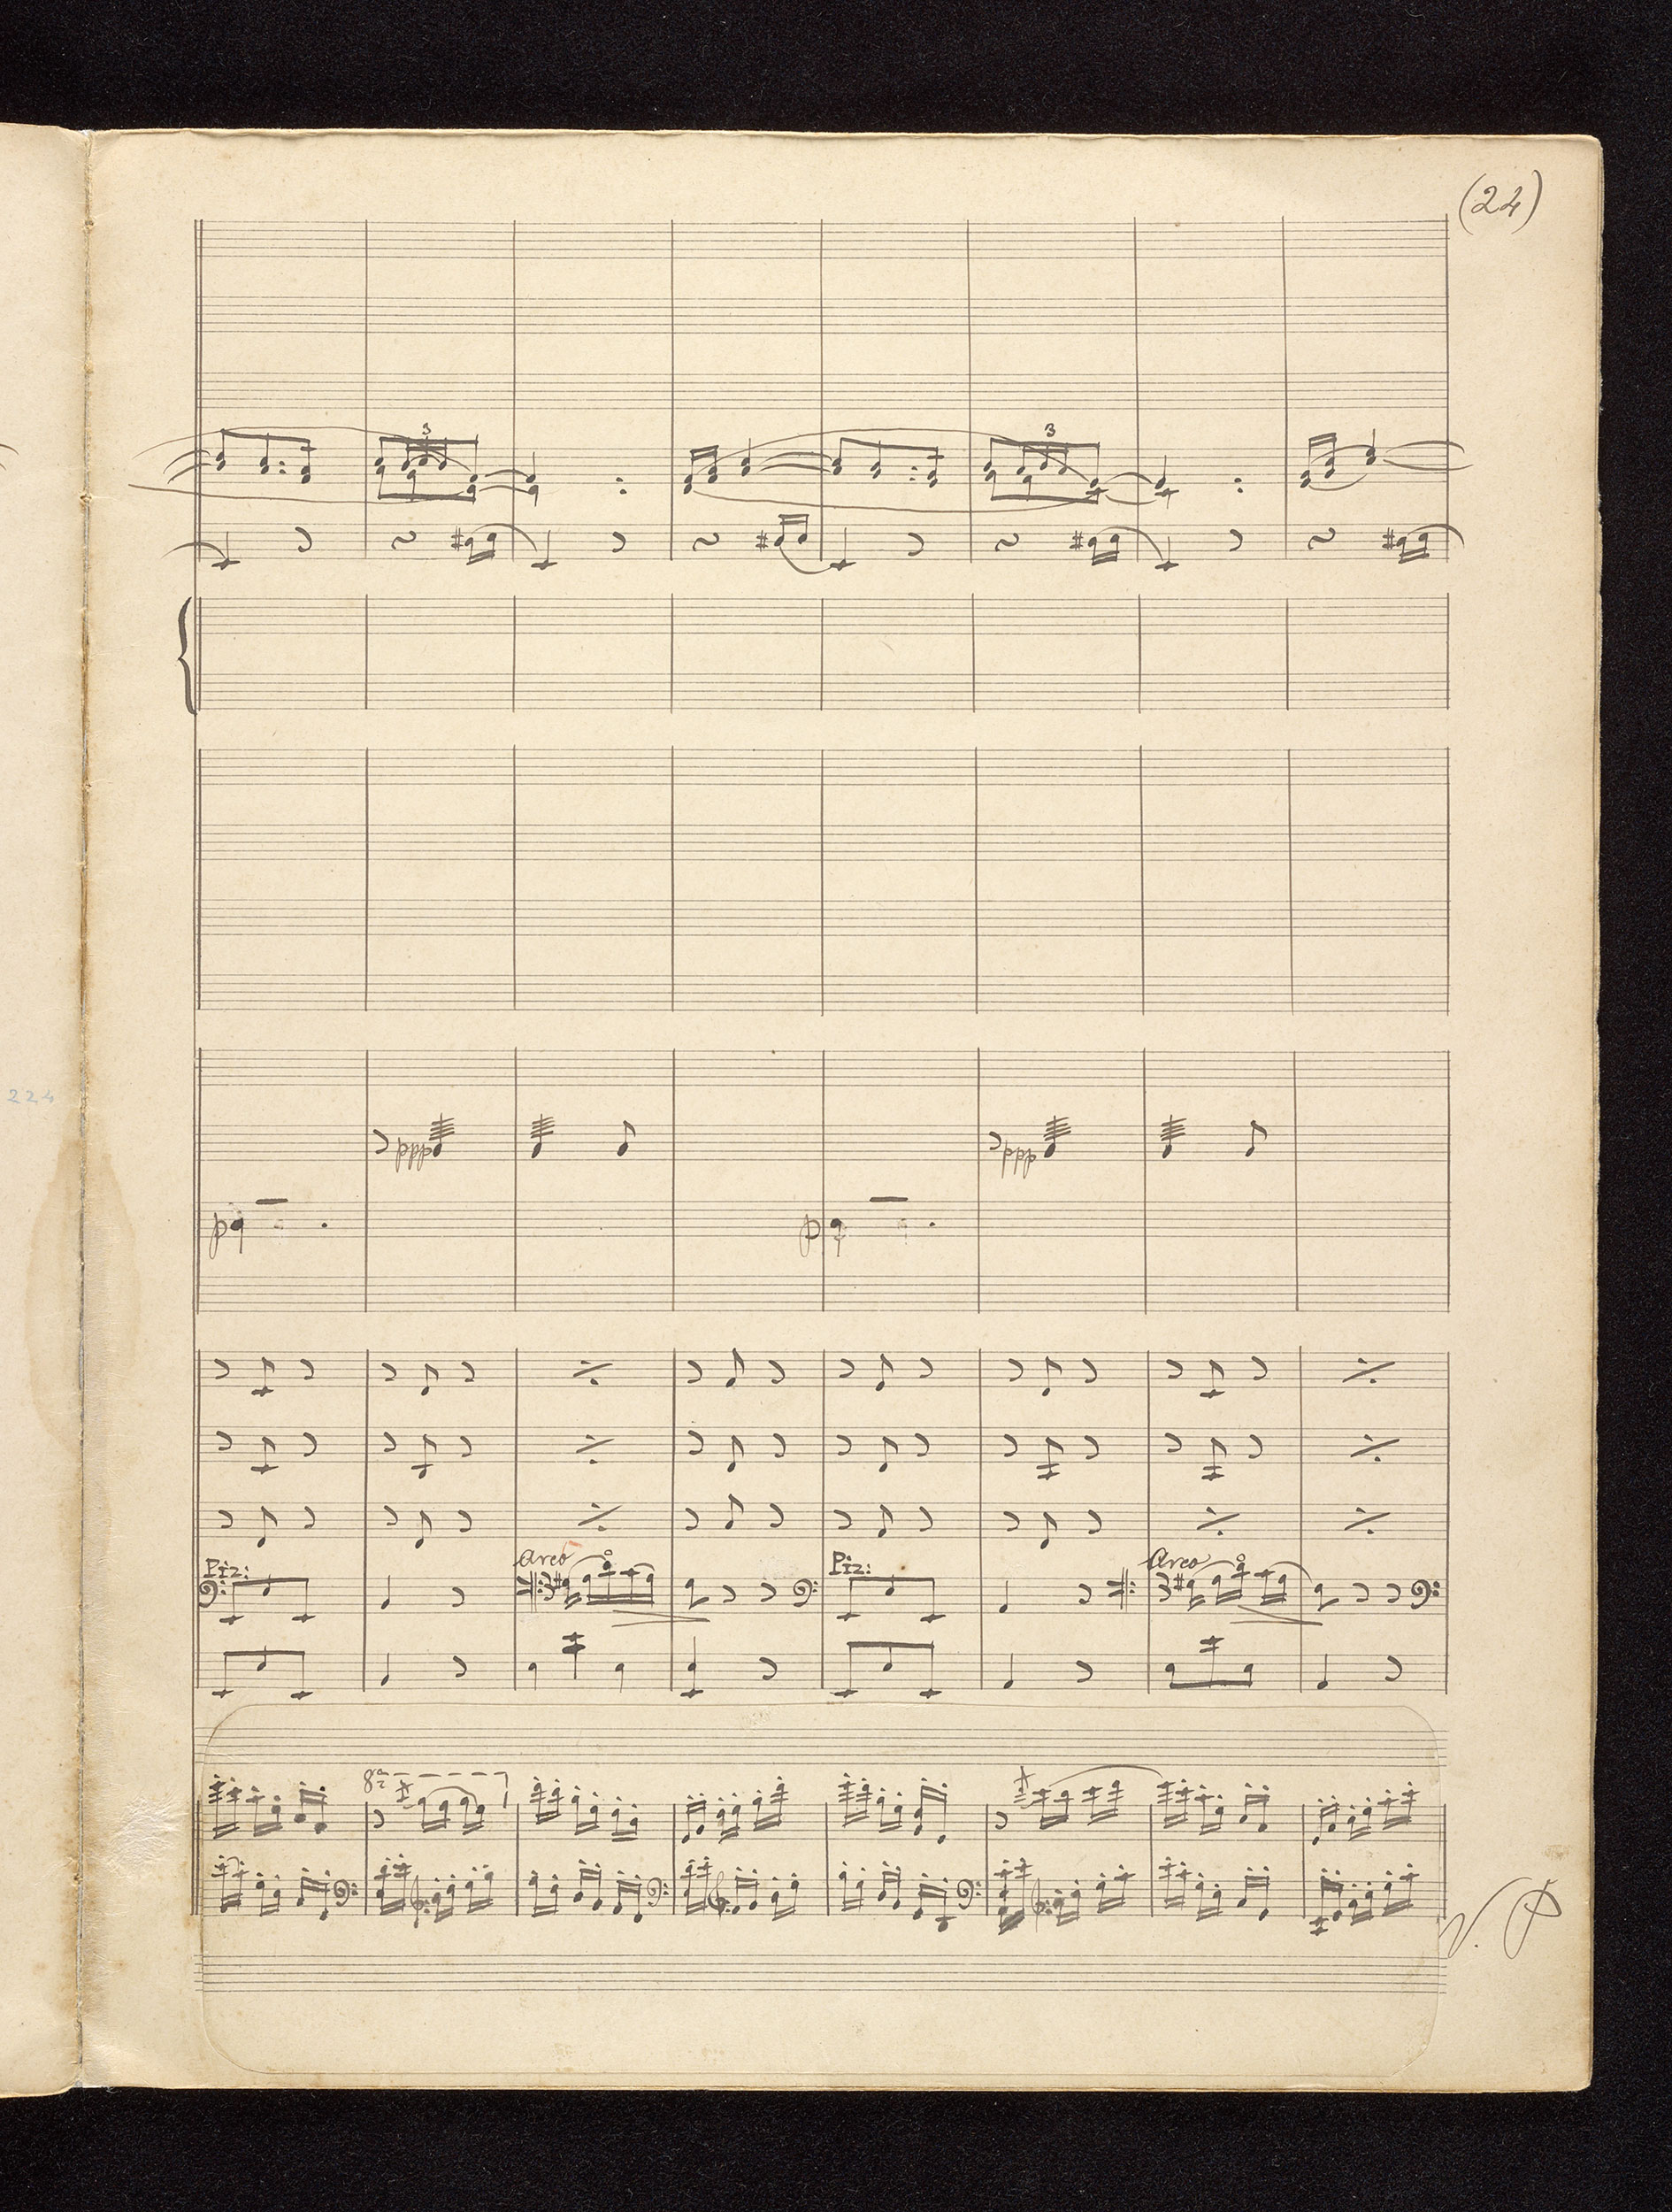 (24)
3 3
224
ppp ppp
p p
Piz: Arco Piz: Arco
8ª